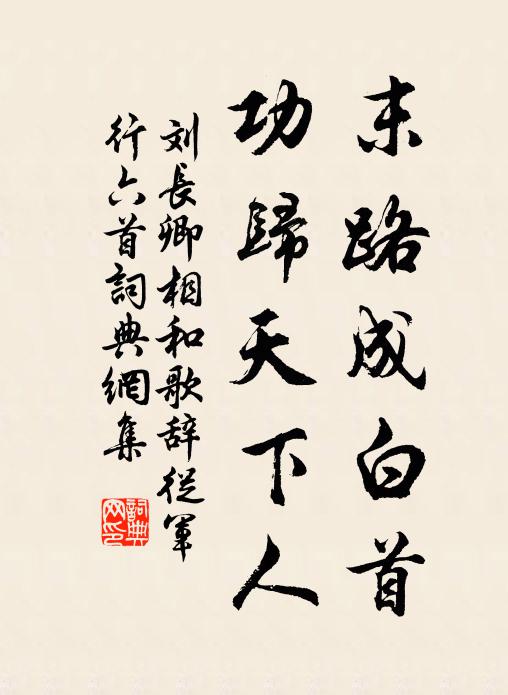 末路成白首
功歸天下人
刘長卿相和歌辞從軍
行六首詞典網集
詞典
网印